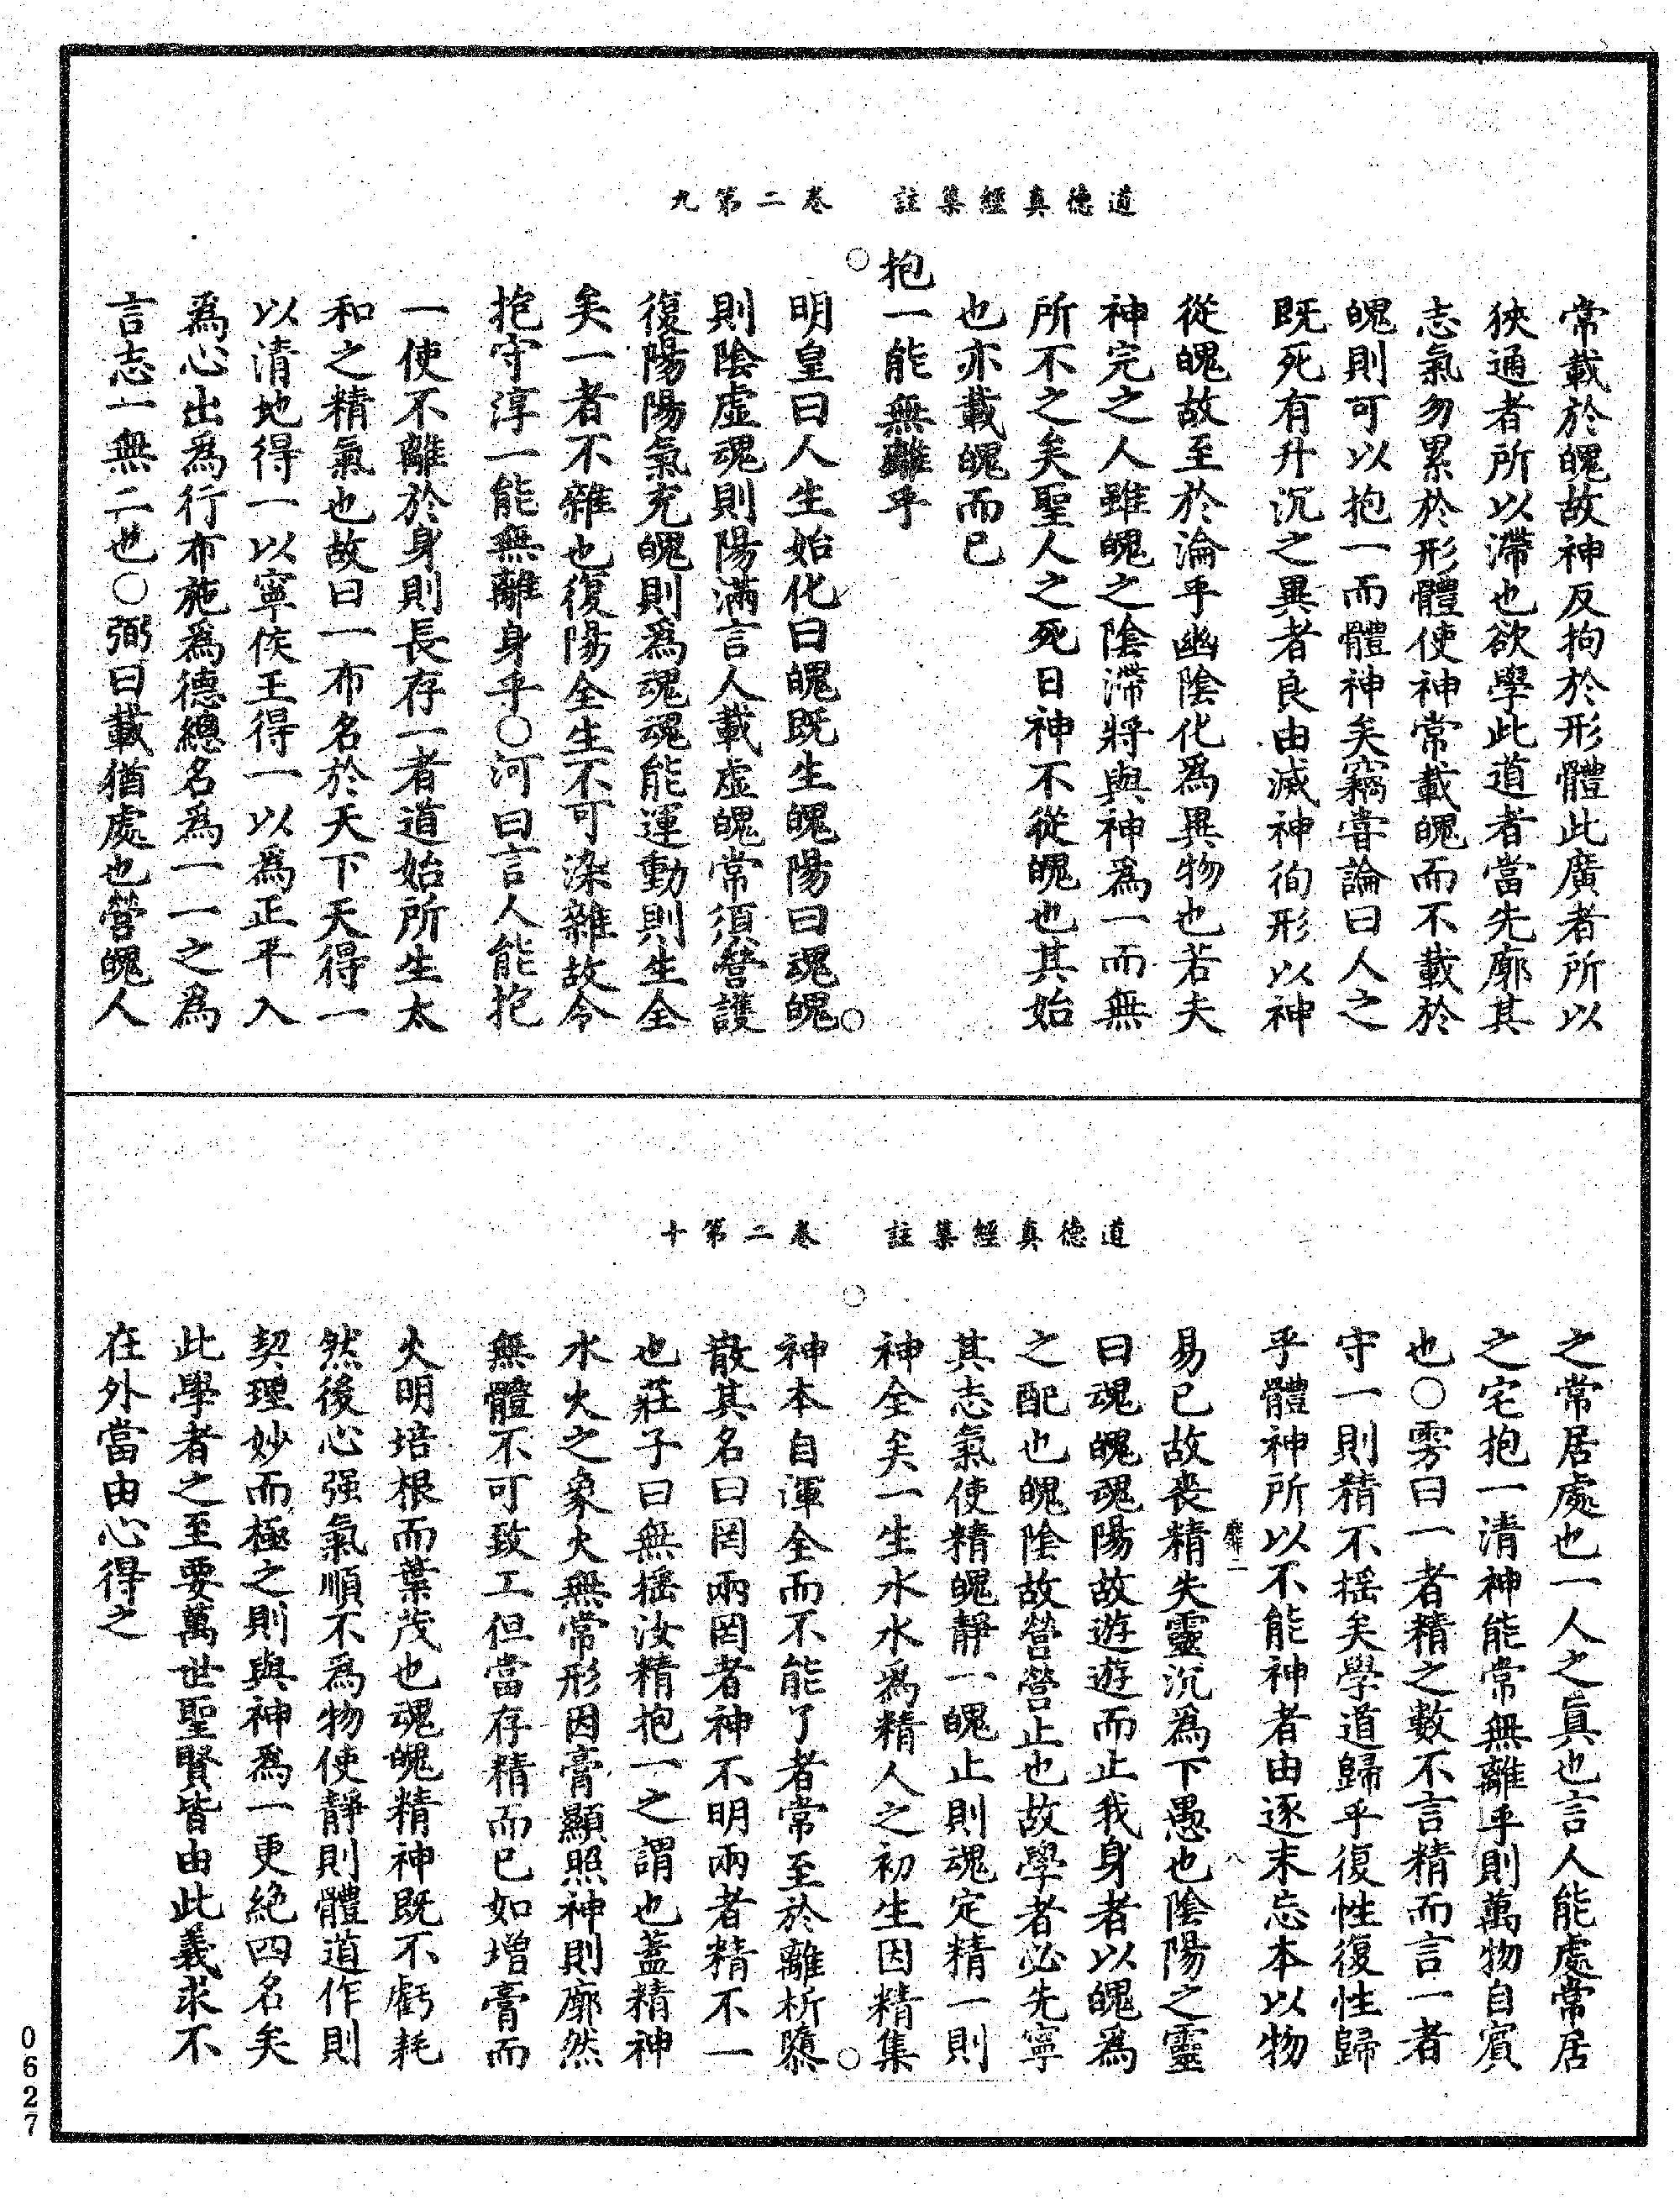 道德真經集註　卷二第九
常載於魄故神反拘於形體此廣者所以
狹通者所以滯也欲學此道者當先廓其
志氣勿累於形體使神常載魄而不載於
魄則可以抱一而體神矣竊嘗論曰人之
既死有升沉之異者良由滅神徇形以神
從魄故至於淪乎幽陰化爲異物也若夫
神完之人雖魄之陰滯將與神爲一而無
所不之矣聖人之死曰神不從魄也其始
也亦載魄而已
抱一能無離乎
明皇曰人生始化曰魄既生魄陽曰魂魄
則陰虛魂則陽滿言人載虛魄常須營護
復陽陽氣充魄則爲魂魂能運動則生全
矣一者不雜也復陽全生不可染雜故令
抱守淳一能無離身乎○河曰言人能抱
一使不離於身則長存一者道始所生太
和之精氣也故曰一布名於天下天得一
以清地得一以寧侯王得一以爲正平入
爲心出爲行布施爲德總名爲一一之爲
言志一無二也○弼曰載猶處也營魄人
道德真經集註　卷二第十
之常居處也一人之真也言人能處常居
之宅抱一清神能常無離乎則萬物自賓
也○雱曰一者精之數不言精而言一者
守一則精不搖矣學道歸乎復性復性歸
乎體神所以不能神者由逐末忘本以物
二　八
易已故喪精失靈沉爲下愚也陰陽之靈
曰魂魄魂陽故遊遊而止我身者以魄爲
之配也魄陰故營營止也故學者必先寧
其志氣使精魄靜一魄止則魂定精一則
神全矣一生水水爲精人之初生因精集
神本自渾全而不能了者常至於離析隳
散其名曰罔兩罔者神不明兩者精不一
也莊子曰無搖汝精抱一之謂也蓋精神
水火之象火無常形因膏顯照神則廓然
無體不可致工但當存精而已如增膏而
火明培根而葉茂也魂魄精神既不虧耗
然後心强氣順不為物使靜則體道作則
契理妙而極之則與神為一更絶四名矣
此學者之至要萬世聖賢皆由此義求不
在外當由心得之
0627